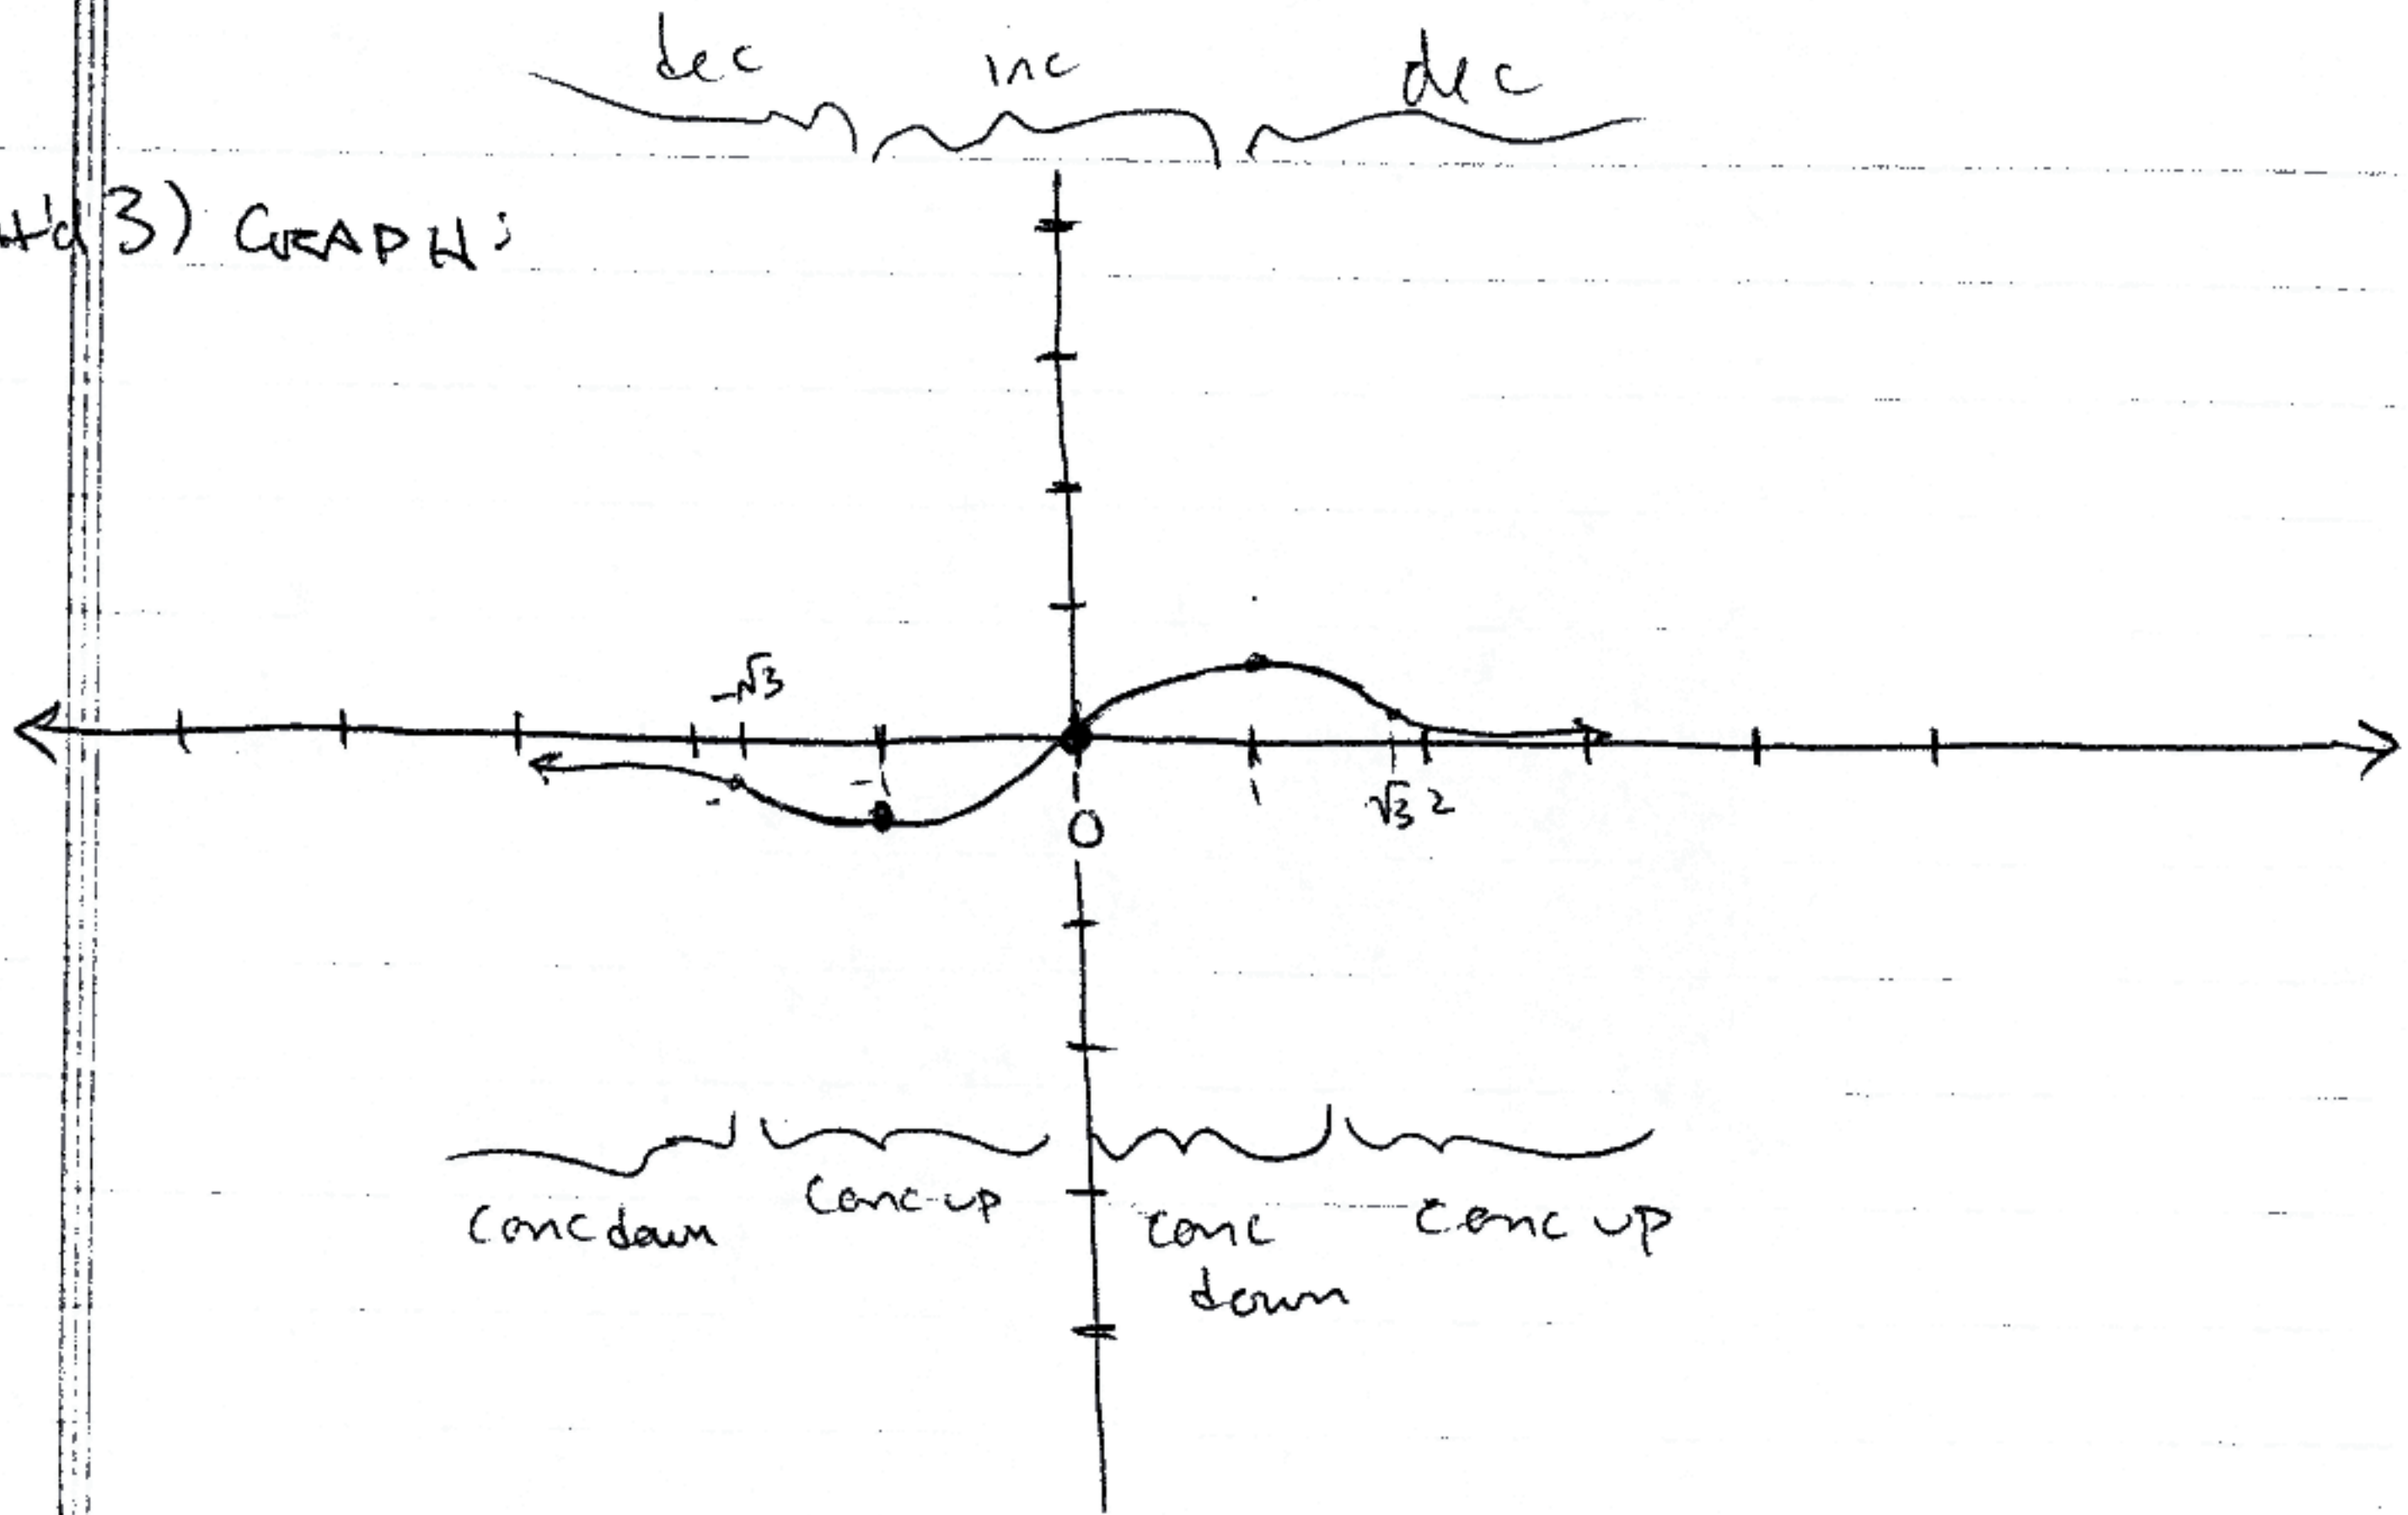 dec inc dec
3) GRAPH:
-√3
-1 1 √3 2
0
conc down conc up conc down conc up